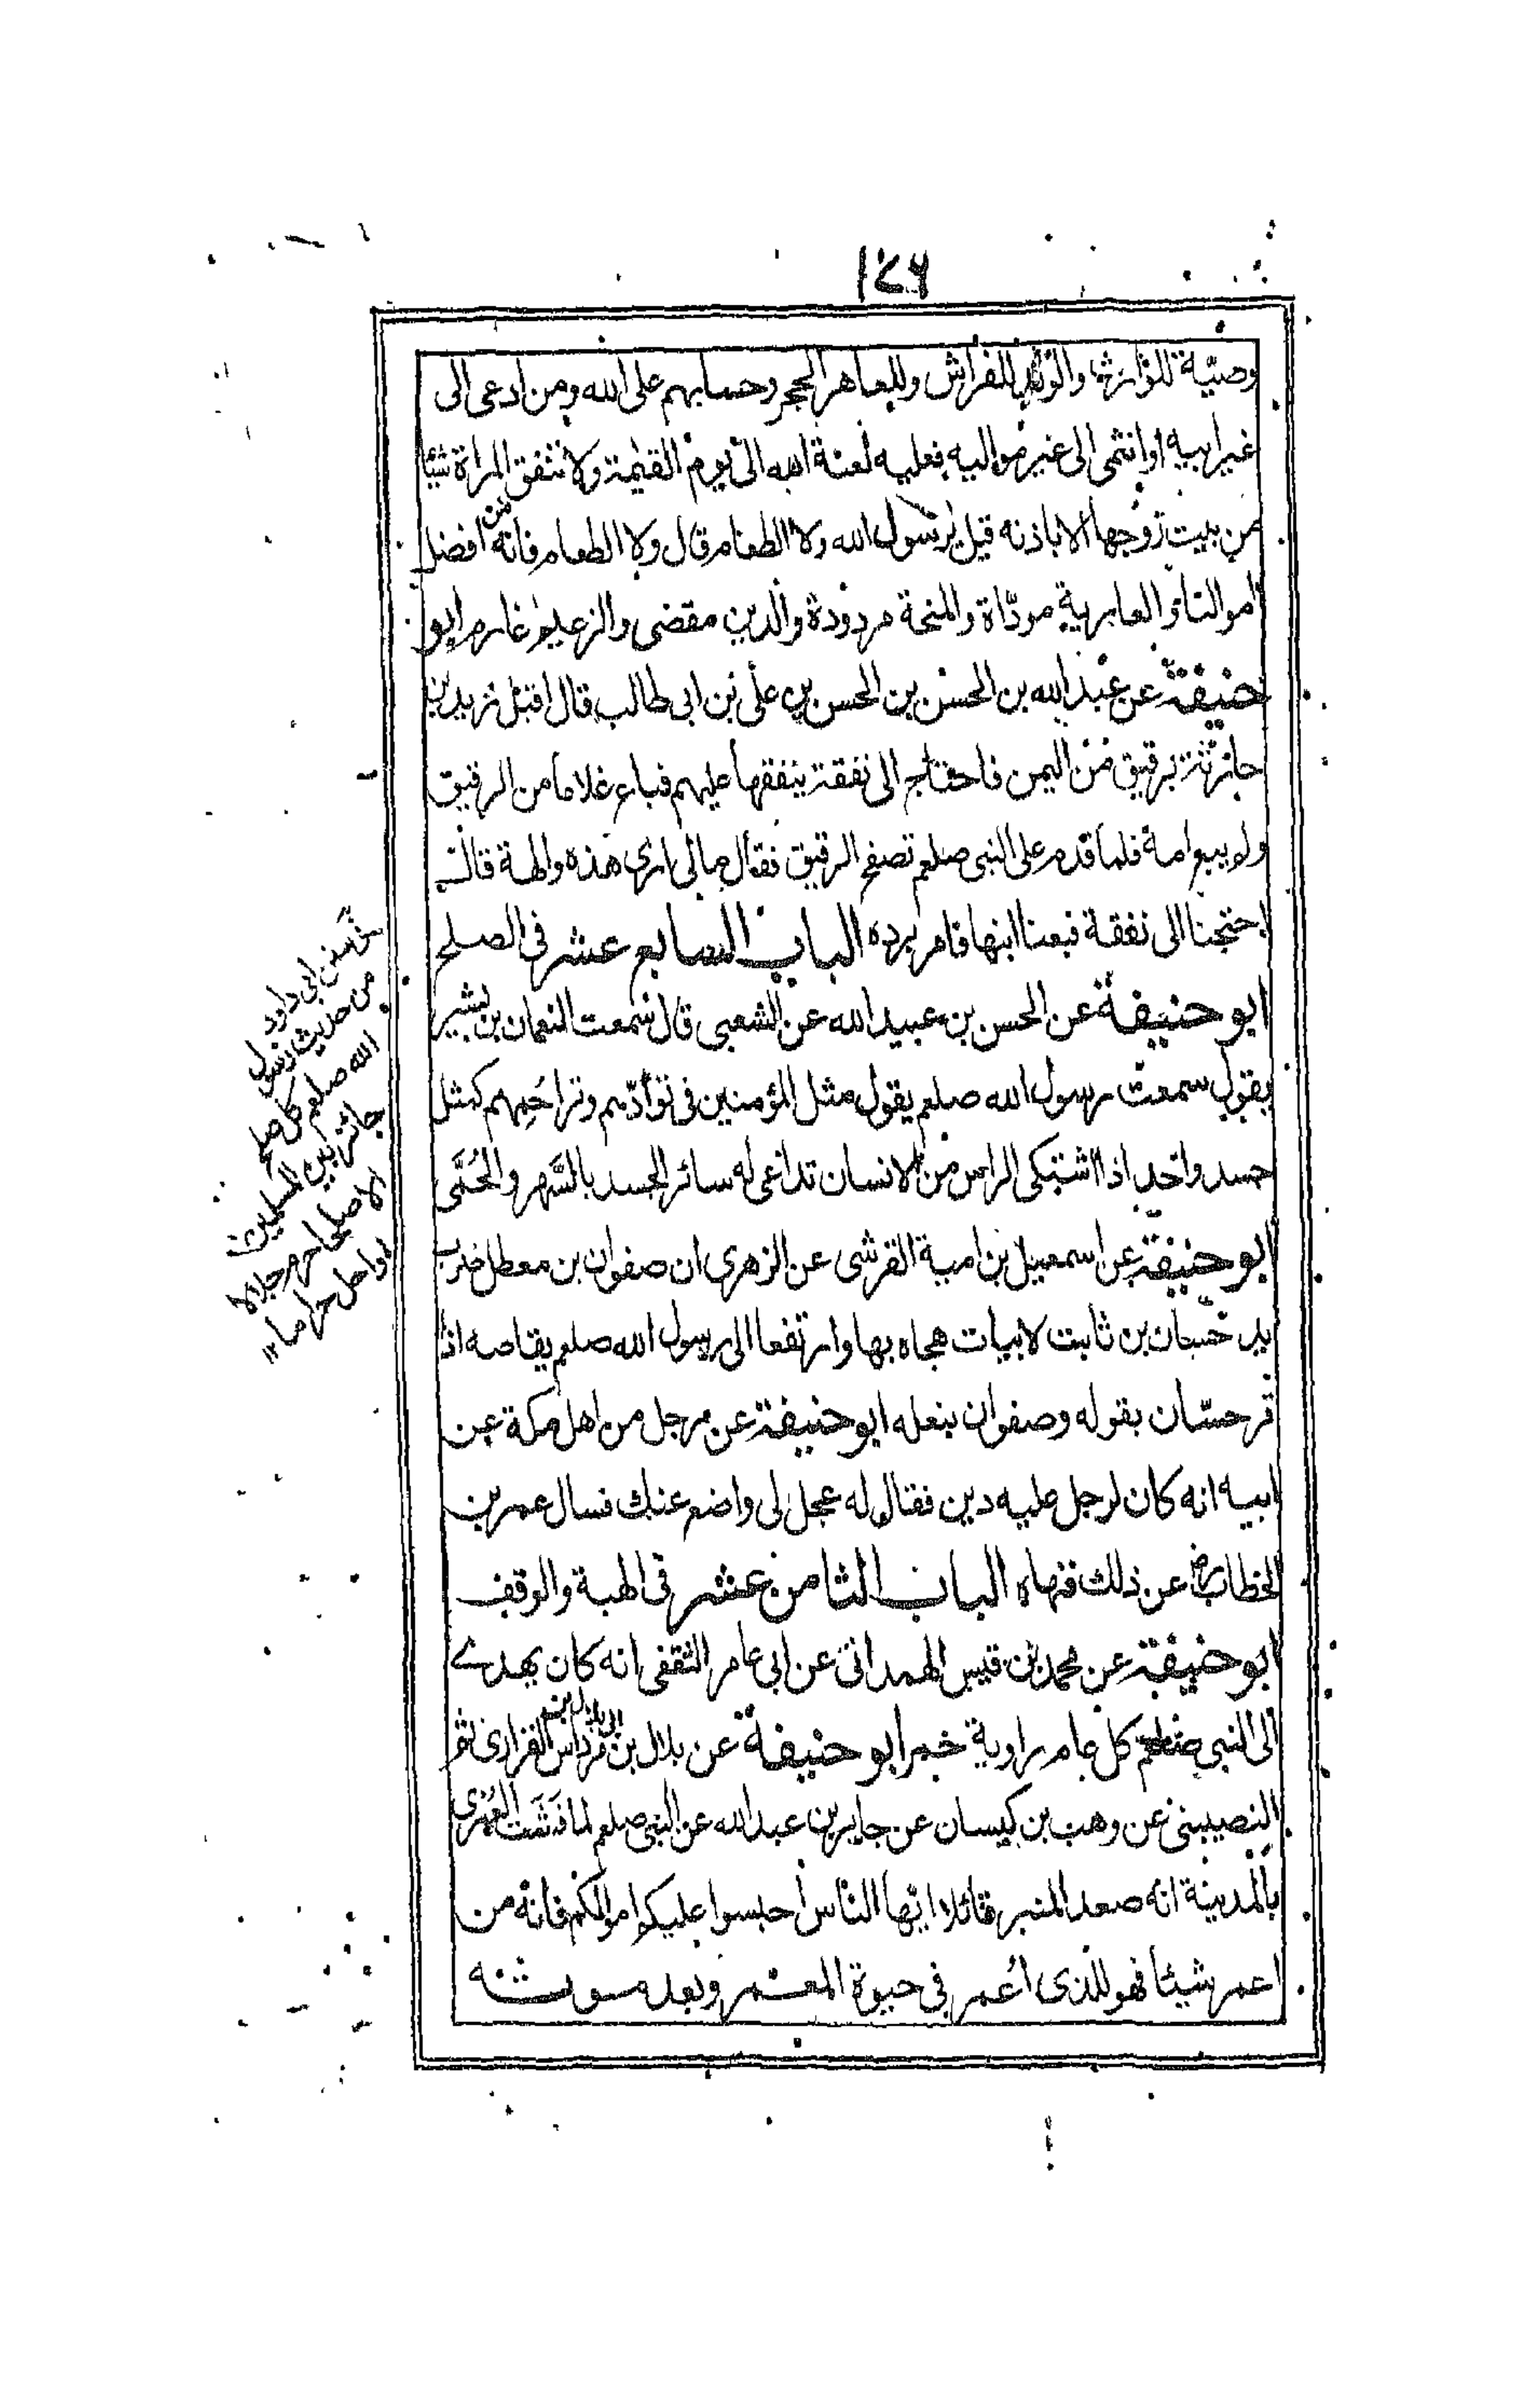 ١٤٦
وصيّة للوارث والولد للفراش وللعاهر الحجر وحسابهم على الله ومن ادعى الى
غير ابيه او انتمى الى غير مواليه فعليه لعنة الله الى يوم القيٰمة ولا تنفق المراة شيئا
من بيت زوجها الا باذنه قيل يرسول الله ولا الطعام قال ولا الطعام فانه من افضل
اموالنا والعارية مودّاة والمنحة مردودة والدين مقضى والزعيم غارم ابو
حنيفة عن عبد الله بن الحسن بن الحسن بن على بن ابى طالب قال اقبل زيد بن
حارثة برقيق من اليمن فاحتاج الى نفقة ينفقها عليهم فباع غلاما من الرقيق
ولم يبع امه فلما قدم على النبى صلعم تصفح الرقيق فقال مالى ارى هذه والهة قالت
احتجنا الى نفقة فبعنا ابنها فامر برده الباب السابع عشر فى الصلح
ابو حنيفة عن الحسن بن عبيد الله عن الشعبى قال سمعت النعمان بن بشير
يقول سمعت رسول الله صلعم يقول مثل المؤمنين فى توادّهم وتراحمهم كمثل
جسد واحد اذا اشتكى الراس من الانسان تداعى له سائر الجسد بالسَّهر والحُمَّى
ابو حنيفة عن اسمعيل بن امية القرشى عن الزهرى ان صفوان بن معطل ضرب
يد حسان بن ثابت لابيات هجاه بها وارتفعا الى رسول الله صلعم يقاصه اذ
قر حسّان بقوله وصفوان بنعله ابو حنيفة عن رجل من اهل مكة عن
ابيه انه كان لرجل عليه دين فقال له عجل لى واضع عنك فسال عمر بن
الخطاب رض عن ذلك فنهاه الباب الثامن عشر فى الهبة والوقف
ابو حنيفة عن محمد بن قيس الهمدانى عن ابى عامر الثقفى انه كان يهدى
الى النبى صلعم كل عام راوية خمر ابو حنيفة عن بلال بن ابى بلال بن مرداس الفزارى ثم
النصيبينى عن وهب بن كيسان عن جابر بن عبد الله عن النبى صلعم لما فَشَت العُمرى
بالمدينة انه صعد المنبر قائلا ايّها الناس احبسوا عليكم اموالكم فانه من
اعمر شيئا فهو للذى اُعمر فى حيوة المعمر وبعد موته
سنن ابى داود
من حديث رسول
الله صلعم كل صلح
جائز بين المسلمين
الا صلحا حرم حلالا
او احل حراما ١٢